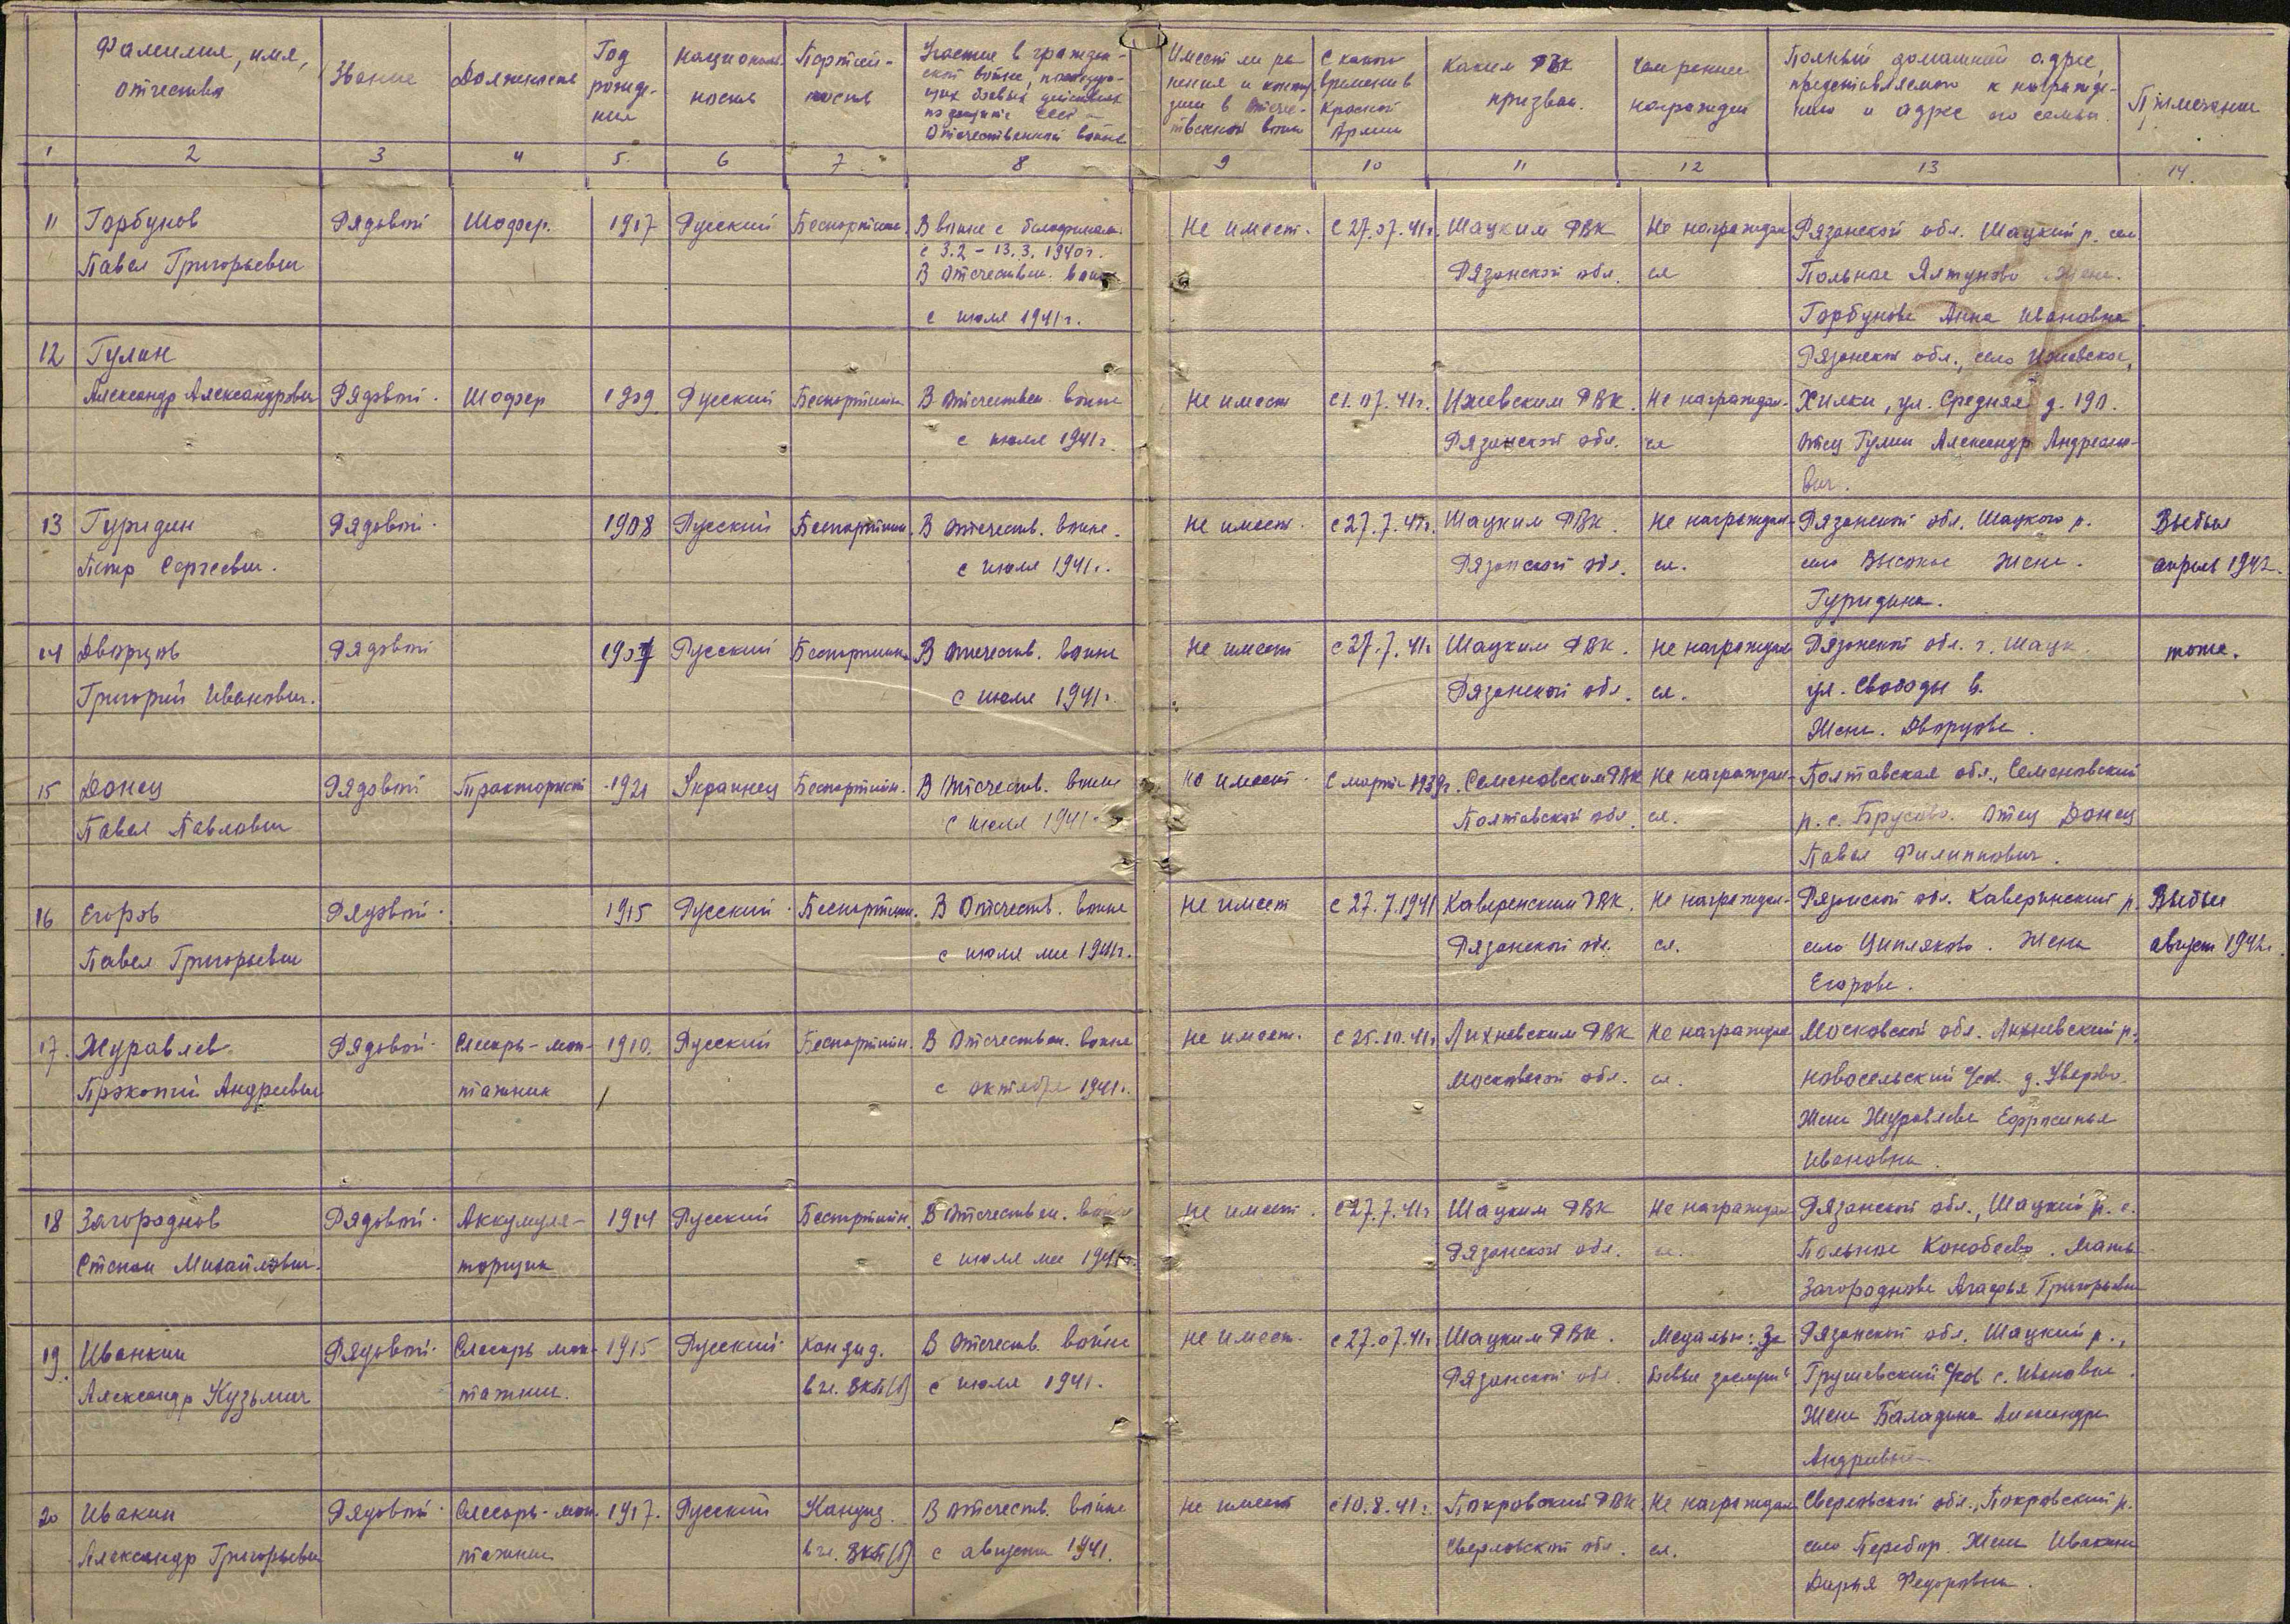 Фамилия, имя, отчество
Звание
Должность
Год рождения
Националь-
ность
Партий-
ность
Участие в граждан-
ской войне, последую-
щих боевых действиях
по защите СССР и
Отечественной войне
Имеет ли ра-
нения и конту-
зии в Отече-
ственной войне
С какого
времени в
Красной
Армии
Каким РВК
призван.
Чем ранее
награжден
Полный домашний адрес,
представляемого к награжде-
нию и адрес его семьи
Примечание
1 2 3 4 5. 6 7 8 9 10 11 12 13 14.
11 Горбунов Рядовой Шофер. 1917 Русский Беспартийн. В войне с белофинами. Не имеет. С 27.07.41г. Шацким РВК Не награждал- Рязанской обл. Шацкий р. село
Павел Григорьевич с 3.2 – 13.3.1940г. Рязанской обл. ся Польное Ялтуново Жена.
В Отечествен. войне
с июля 1941г. Горбунова Анна Ивановна
12 Гулин Рязанской обл., село Ижевское,
Александр Александрович Рядовой. Шофер 1909. Русский Беспартийн. В Отечествен. войне Не имеет с 1.07.41г. Ижевским РВК. Не награждал- Хилки, ул. Средняя д. 190.
с июля 1941г. Рязанской обл. ся Отец Гулин Александр Андреяно-
вич.
13 Гуридин Рядовой. 1908 Русский Беспартийн. В Отечеств. войне. Не имеет. с 27.7.41г. Шацким РВК. Не награждал- Рязанской обл. Шацкого р. Выбыл
Петр Сергеевич. с июля 1941г. Рязанской обл. ся. село Высокое Жена. апрель 1942.
Гуридина.
14 Дворцов Рядовой Русский Беспартийн. В Отечеств. войне Не имеет с 27.7.41г Шацким РВК. Не награждал- Рязанской обл. г. Шацк. тоже.
Григорий Иванович. с июля 1941г Рязанской обл. ся. ул. Свободы
Жена. Дворцова.
15 Донец Рядовой Тракторист 1921 Украинец Беспартийн. В Отечеств. войне Не имеет. С марта 1939г. Семеновским РВК Не награждал- Полтавская обл., Семеновский
Павел Павлович с июля 1941г. Полтавской обл. ся. р. с. Брусово. Отец Донец
Павел Филиппович.
16 Егоров Рядовой. 1915 Русский. Беспартийн. В Отечеств. войне Не имеет с 27.7.1941 Каверенским РВК. Не награждал- Рязанской обл. Каверинский р. Выбыл
Павел Григорьевич с июля м-ца 1941г. Рязанской обл. ся. село Циплаково. Жена август 1942г.
Егорова.
17. Журавлев Рядовой. Слесарь-мон- 1910. Русский Беспартийн. В Отечествен. войне Не имеет. с 25.10.41г Лихневским РВК Не награждал- Московской обл. Лихневский р.
Прокопий Андреевич тажник с октября 1941г. Московской обл. ся. Новосельский с/сов. д. Уварово.
Жена Журавлева Ефросинья
Ивановна.
18 Загороднов Рядовой. Аккумуля- 1914 Русский Беспартийн. В Отечествен. войне Не имеет. с 27.7.41г Шацким РВК Не награждал- Рязанской обл., Шацкий р. с.
Степан Михайлович. торщик с июля м-ца 1941г. Рязанской обл. ся. Польное Конобеево. Мать
Загороднова Агафья Григорьевна
19. Иванкин Рядовой. Слесарь мон- 1915 Русский. Кандид. В Отечеств. войне Не имеет. с 27.07.41г. Шацким РВК. Медалью: За Рязанской обл. Шацкий р.,
Александр Кузьмич тажник. в чл. ВКП(б) с июля 1941. Рязанской обл. боевые заслуги" Грушевский с/сов. с.
Жена Баладина Александра
Андреевна
20 Ивакин Рядовой. Слесарь-мон- 1917. Русский Кандид. В Отечеств. войне Не имеет с 10.8.41г. Покровский РВК. Не награждал- Свердловской обл., Покровский р.
Александр Григорьевич тажник в чл. ВКП(б) с августа 1941. Свердловской обл. ся. село Перебор. Жена Ивакина
Дарья Федоровна.